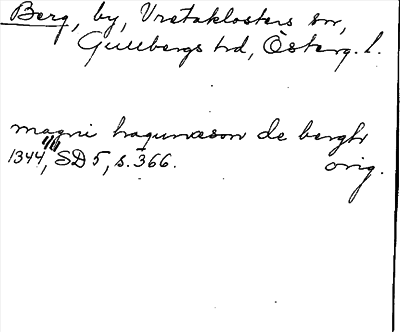 Berg, by, Vretaklosters sn,
Gullbergs hd, Österg. l.
magni haquinæson de bergh
1344 4/4, SD 5, s. 366. orig.